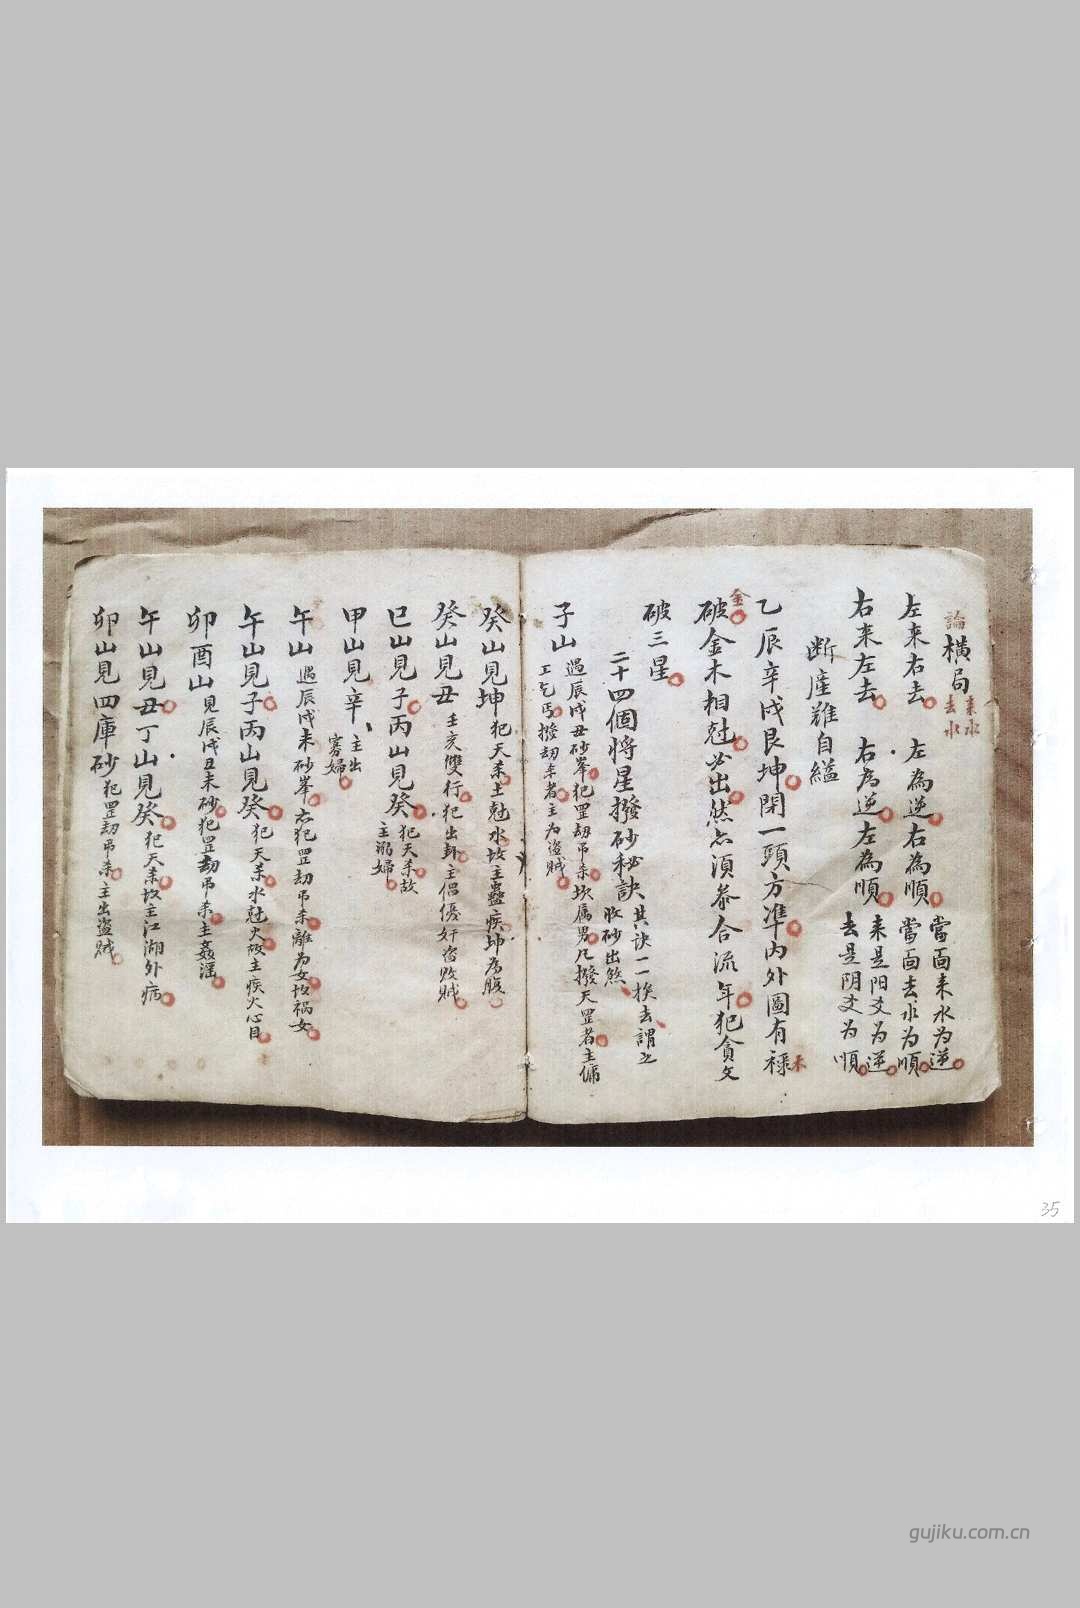 論橫局 来水去水
左来右去 左為逆右為順 當面来水为逆 當面去水为順
右来左去 右為逆左為順 来是阳爻为逆 去是阴爻为順
断產难自縊
乙辰辛戌艮坤閉一頭方準内外圖有祿 木
金 破金木相尅必出煞亦須叅合流年犯貪文
破三星
二十四個將星撥砂秘訣 其诀一挨去謂之 收砂出煞
子山 遇辰戌丑砂峯犯罡劫吊杀坎属男凡撥天罡者主傭
工乞丐撥劫杀者主为盗賊
癸山見坤 犯天杀土尅水故主蠱疾坤為腹
癸山見丑 壬亥雙行犯出卦主倡優奸盗敗賊
巳山見子丙山見癸 犯天杀故主溺婦
甲山見辛 主出寡婦
午山 遇辰戌未砂峯亦犯罡劫吊杀離为女故禍女
午山見子丙山見癸 犯天杀水尅火故主疾火心目
卯酉山 見辰戌丑未砂犯罡劫吊杀主姦淫
午山見丑丁山見癸 犯天杀故主江湖外病
卯山見四庫砂 犯罡劫吊杀主出盜賊
35
gujiku.com.cn